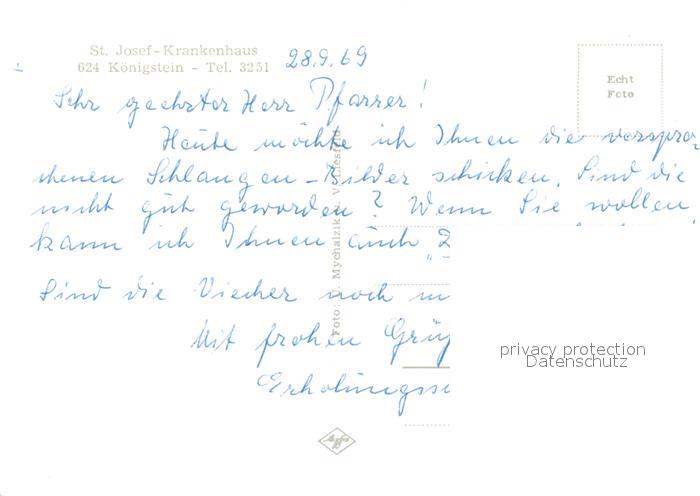 St. Josef-Krankenhaus
624 Königstein - Tel. 3251
28.9.69
Echt
Foto
Sehr geehrter Herr Pfarrer!
Heute möchte ich Ihnen die verspro
chenen Schlangen-Bilder schicken. Sind die
nicht gut geworden? Wenn Sie wollen
kann ich Ihnen auch
Sind die Viecher noch
Mit frohen
Foto: Mychalzik
privacy protection
Datenschutz
Agfa